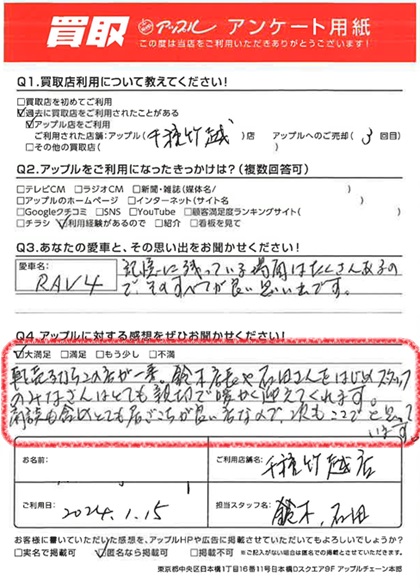 買取 アップル アンケート用紙
この度は当店をご利用いただきありがとうございます!
Q1.買取店利用について教えてください!
□買取店を初めてご利用
☑過去に買取店をご利用されたことがある
☑アップル店をご利用
ご利用された店舗:アップル( 千種竹越 )店 アップルへのご売却( 3 回目)
□その他の買取店( )
Q2.アップルをご利用になったきっかけは?(複数回答可)
□テレビCM □ラジオCM □新聞・雑誌(媒体名/ )
□アップルのホームページ □インターネット(サイト名 )
□Googleクチコミ □SNS □YouTube □顧客満足度ランキングサイト( )
□チラシ ☑利用経験があるので □紹介 □看板を見て
Q3.あなたの愛車と、その思い出をお聞かせください!
愛車名: RAV4
記憶に残っている場面はたくさんあるの
で、そのすべてが良い思い出です。
Q4.アップルに対する感想をぜひお聞かせください!
☑大満足 □満足 □もう少し □不満
車売るならこの店が一番。鈴木店長や石田さんをはじめスタッフ
のみなさんはとても親切で暖かく迎えてくれます。
商談も含めとても居ごこちが良い店なので、次もここでと思って
います。
お名前:
ご利用店舗名: 千種竹越店
ご利用日: 2024.1.15
担当スタッフ名: 鈴木、石田
お客様に書いていただいた感想を、アップルHPや広告に掲載させていただいてもよろしいでしょうか?
□実名で掲載可 ☑匿名なら掲載可 □掲載不可 ※ご記入がない場合は匿名での掲載とさせていただきます。
東京都中央区日本橋1丁目16番11号日本橋Dスクエア9F アップルチェーン本部